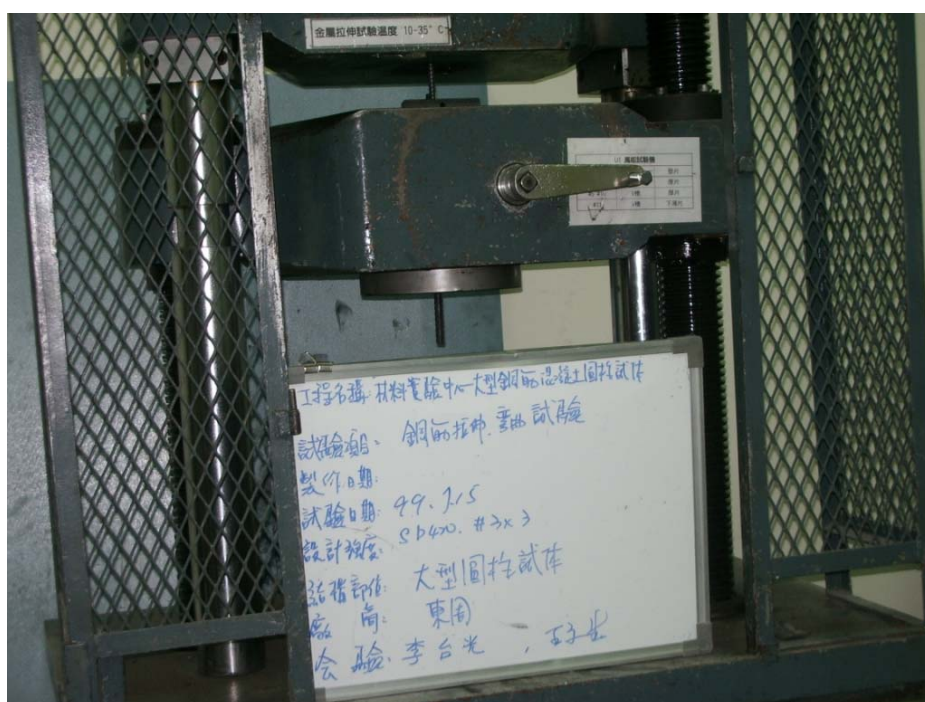 金屬拉伸試驗溫度 10-35° C
萬能試驗機
墊片
V槽
#11 V槽 下滿片
工程名稱: 材料實驗中心-大型鋼筋混凝土圓柱試體
試驗項目: 鋼筋拉伸、彎曲試驗
製作日期:
試驗日期: 99.7.15
設計強度: SD420. #3x3
結構部位: 大型圓柱試体
廠 商: 東周
会 驗: 李台光